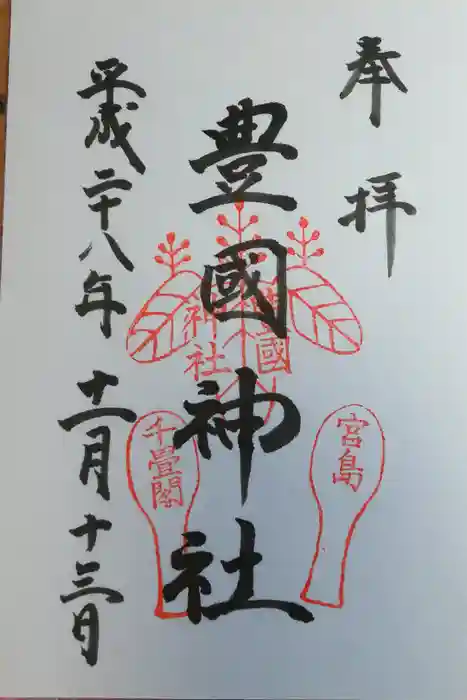 奉拝
豊國神社
豊國
神社
宮島
千畳閣
平成二十八年十一月十三日